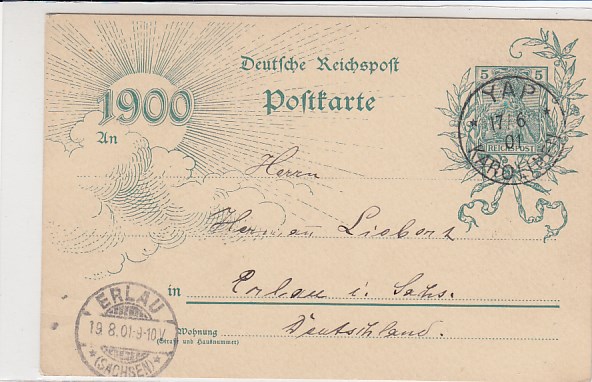 Deutsche Reichspost
1900
Postkarte
5 5
REICHSPOST
YAP
17/6
01
KAROLINEN
An
Herrn
Hermann Liebert
in Erlau i. Sachs.
Wohnung
(Straße und Hausnummer)
Deutschland.
ERLAU
19.8.01.9-10V
*(SACHSEN)*